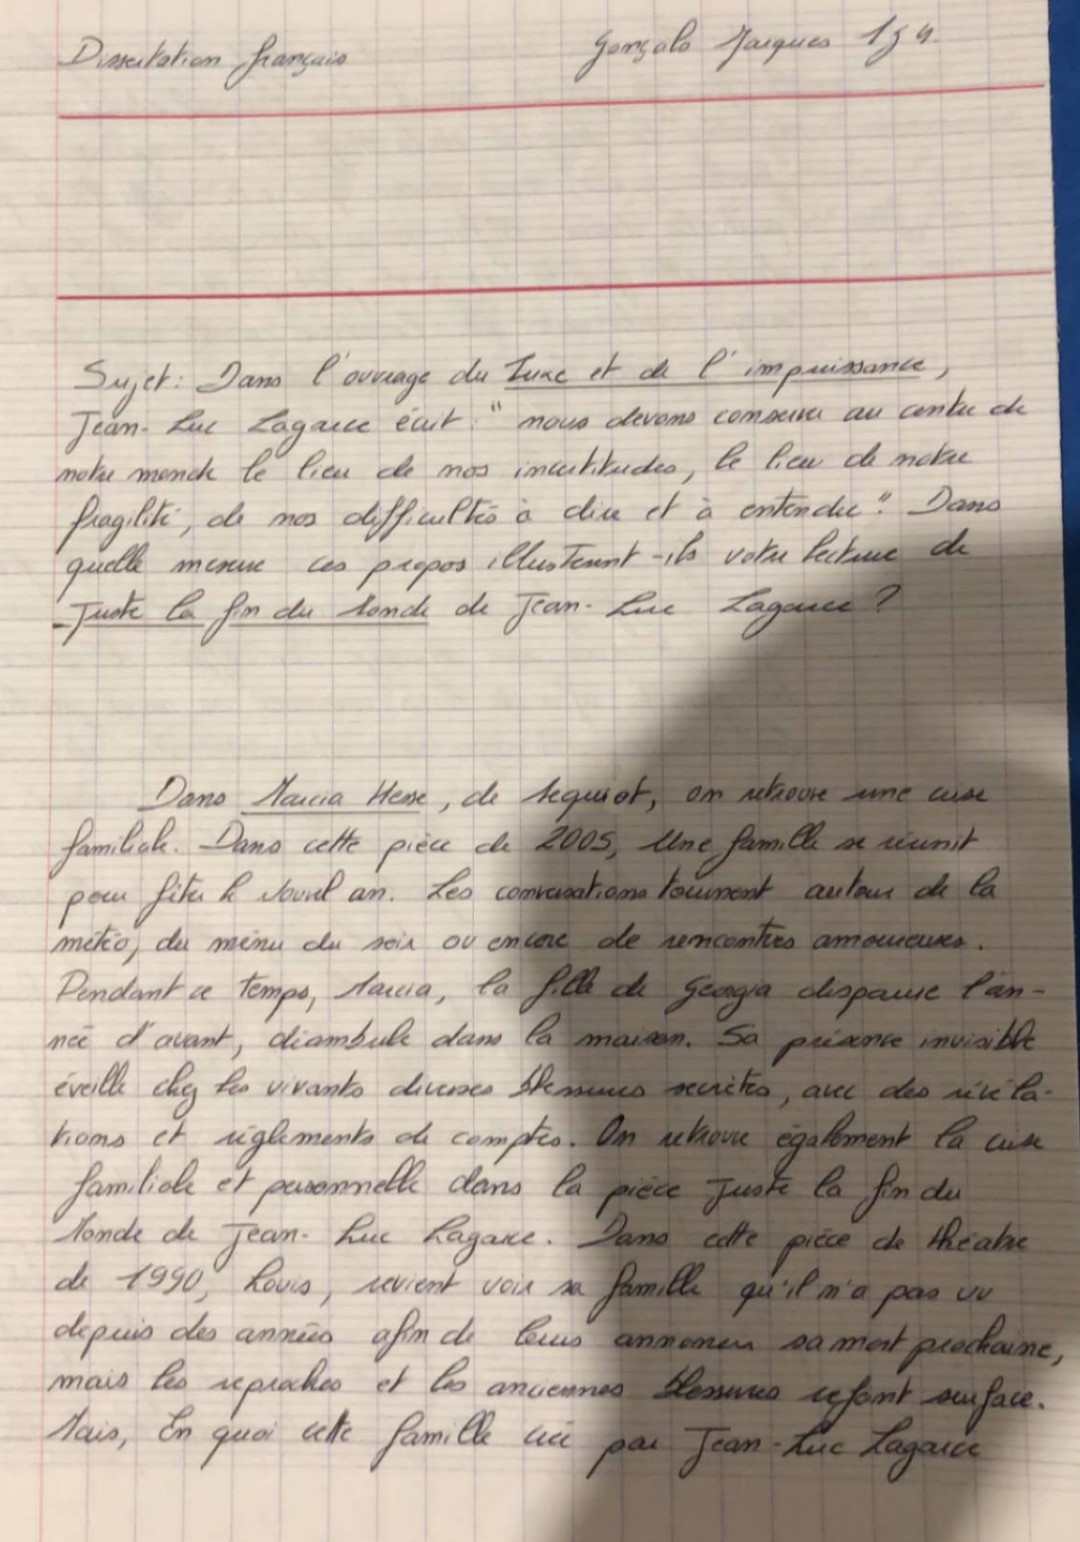 Dissertation français
Gonçalo Marques 1g4.
Sujet: Dans l'ouvrage du Luxe et de l'impuissance,
Jean-Luc Lagarce écrit : "nous devons conserver au centre de
notre monde le lieu de nos incertitudes, le lieu de notre
fragilité, de nos difficultés à dire et à entendre". Dans
quelle mesure ces propos illustrent-ils votre lecture de
Juste la fin du Monde de Jean-Luc Lagarce ?
Dans Marcia Hesse, de Mequiot, on retrouve une crise
familiale. Dans cette pièce de 2005, Une famille se réunit
pour fêter le Nouvel an. Les conversations tournent autour de la
météo, du ménu du soir ou encore de rencontres amoureuses.
Pendant ce temps, Marcia, la fille de Georgia disparue l'an-
née d'avant, déambule dans la maison. Sa présence invisible
éveille chez les vivants diverses blessures secrètes, avec des révéla-
tions et règlements de comptes. On retrouve également la crise
familiale et personnelle dans la pièce Juste la fin du
Monde de Jean-Luc Lagarce. Dans cette pièce de théatre
de 1990, Louis, revient voir sa famille qu'il n'a pas vu
depuis des années afin de leurs annoncer sa mort prochaine,
mais les reproches et les anciennes blessures refont surface.
Mais, En quoi cette famille créé par Jean-Luc Lagarce